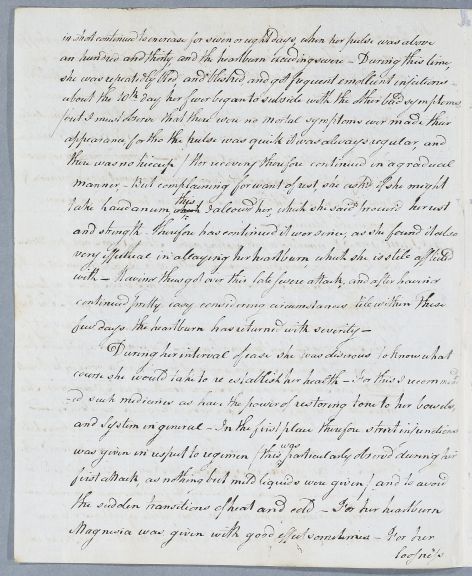 in short continued to increase for seven or eight days, when her pulse was above
an hundred and thirty and the heartburn exceeding severe – During this time
she was repeatedly bled and blistered and got frequent emollient injections –
about the 10th day her fever began to subside with the other bad symptoms
(but I must observe that there were no mortal symptoms ever made their
appearance for tho the pulse was quick it was always regular, and
there was no hiccup) Her recovery therefore continued in a gradual
manner – But complaining for want of rest, she ask'd if she might
take laudanum, this I allowed her, which she said procur'd her rest
and strength therefore has continued it ever since, as she found it also
very effectual in allaying her heartburn which she is still afflicted
with – Having thus got over this late severe attack, and after having
continued pretty easy considering circumstances till within these
few days the heartburn has returned with severity –
During her interval of ease she was desirous to know what
course she would take to re establish her health – For this I recommend
-ed such medicines as have the power of restoring tone to her bowels,
and System in general – In the first place therefore strict injunctions
was given in respect to regimen (this was particularly observd during her
first attack, as nothing but mild liquids were given) and to avoid
the sudden transitions of heat and cold – For her heartburn
Magnesia was given with good effect sometimes – For her
loosness